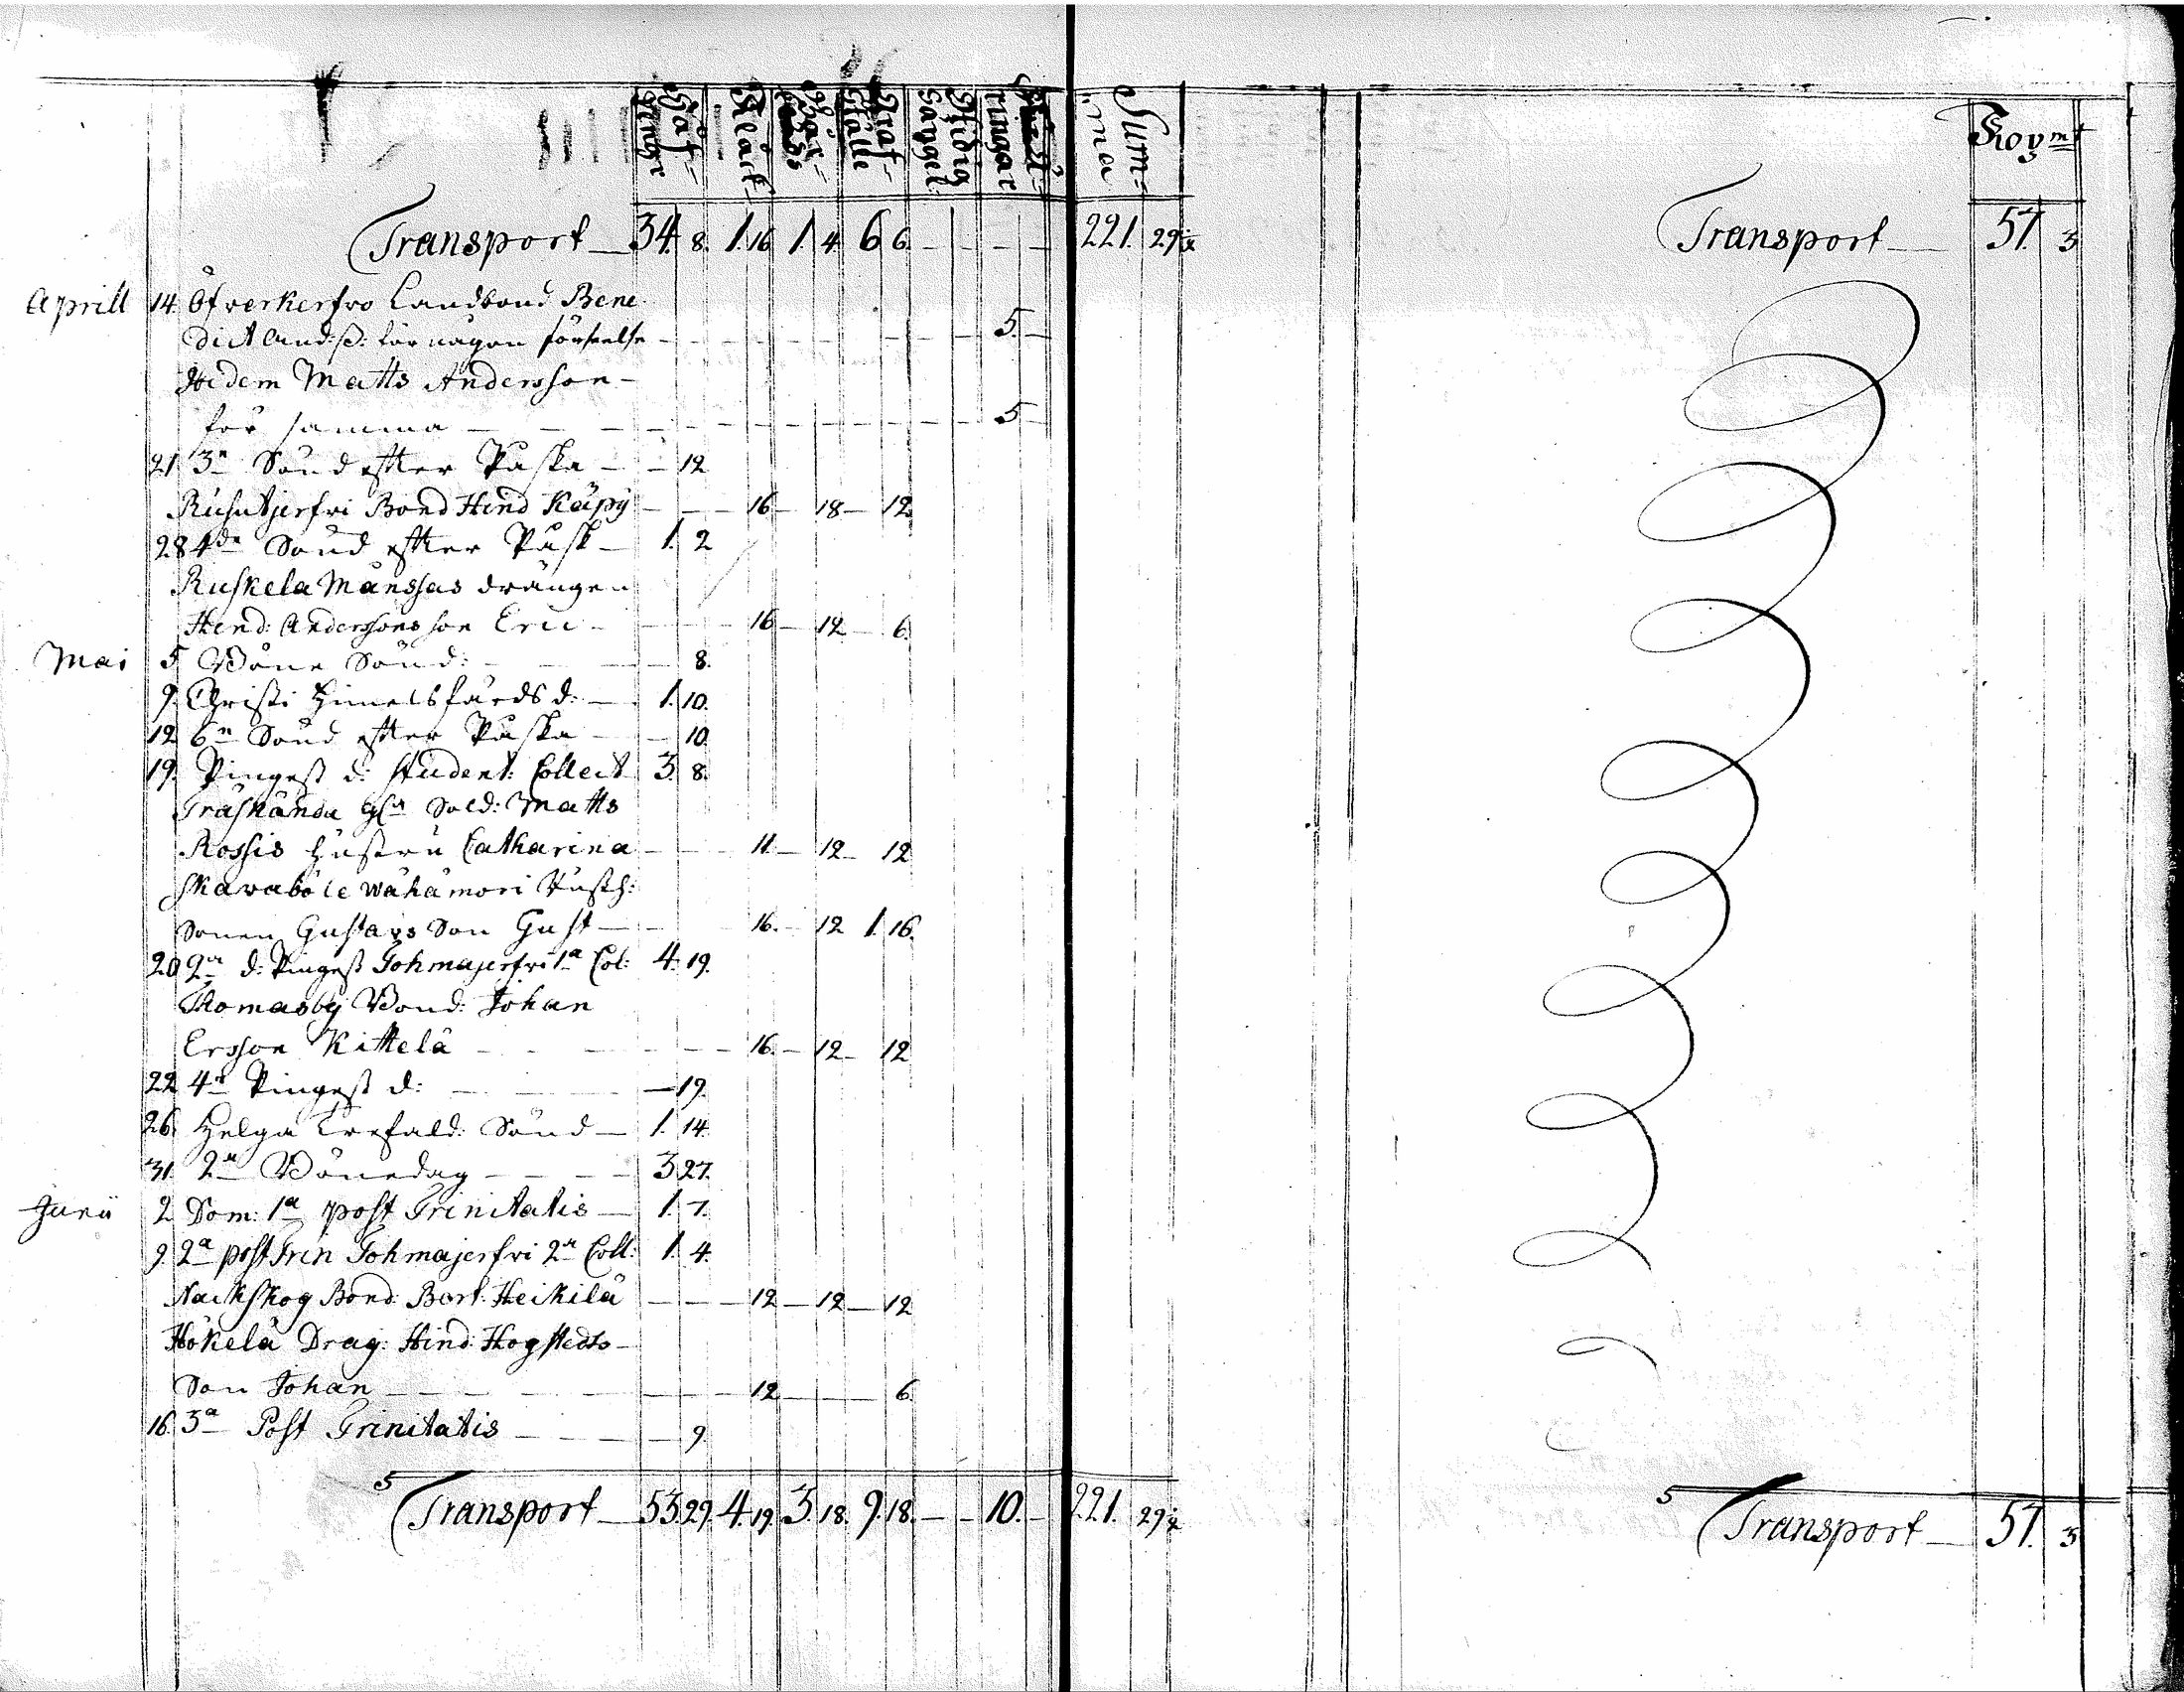 Håf= Klåck Bår= Graf= Ohidig Sum=
Pengr kläde ställe Sångel ringar ma
Transport 34. 8. 1. 16 1. 4. 6 6. — — — — 221. 29½
Aprill 14. Öfverkerfvo Landbond Bene
dict And:ß: för någon förseelse — — — 5. —
Itidem Matts Andersson —
för samma — — — 5 —
21 3n Sönd efter Påska — — 12
Ruhutjerfvi Bond Hind Käpÿ — — 16 — 18 — 12
28 4de Sönd efter Påsk — 1. 2
Ruskela Månssas drängen
Hend: Anderssons son Eric — — 16 — 12 — 6.
Mai 5 Böne Sönd: — — 8.
9. Christi Himelsfärds d: — 1. 10.
12 6n Sönd efter Påska — — 10
19. Pingest d: student: Collect 3. 8.
Träskända Sold: Matts
Rossis Hustru Catharina — — 11 — 12 — 12
Skavaböle Wähämori
Sonen Gustavs Son Gust — — 16. — 12 1. 16.
20 2n d: Pingest Tohmajerfvi 1a Col: 4. 19.
Thomasby Bond: Johan
Ersson Kittelä — — — 16. — 12 — 12
22 4n Pingest d: — — 19.
26. Helga Trefald: Sönd — 1. 14.
31. 2n Bönedag — — — 3 27.
Junii 2 Dom: 1a post Trinitatis — 1. 7.
9. 2a post Trin Tohmajerfvi 2n Coll: 1. 4.
Nackskog Bond: Bert: Heikilä — — — 12 — 12 — 12
Hökelä Drag: Hind: Hogstedts —
Son Johan — — — 12 — — 6
16. 3a Post Trinitatis — — — 9.
Transport — 53. 29. 4. 19. 3. 18. 9. 18. — — 10. — 221. 29½
Koymt
Transport — 57. 3
Transport — 57. 3